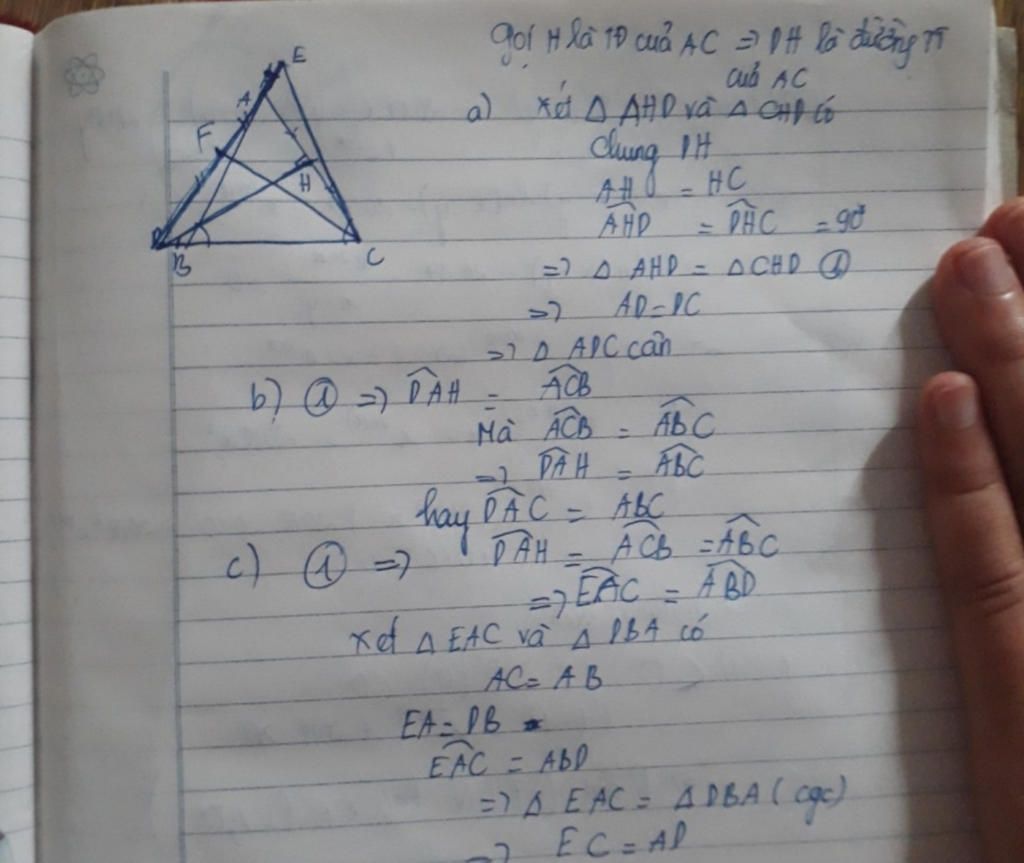 E
A
F
H
D
B
C
gọi H là TĐ cuả AC => DH là đường TT
cuả AC
a) xét Δ AHD và Δ CHD có
Chung DH
AH = HC
AHD = DHC = 90°
=> Δ AHD = Δ CHD ①
=> AD = DC
=> Δ ADC cân
b) ① => DAH = ACB
Mà ACB = ABC
=> DAH = ABC
hay DAC = ABC
c) ① => DAH = ACB = ABC
=> EAC = ABD
xét Δ EAC và Δ DBA có
AC = AB
EA = DB
EAC = ABD
=> Δ EAC = Δ DBA ( cgc)
=> EC = AD